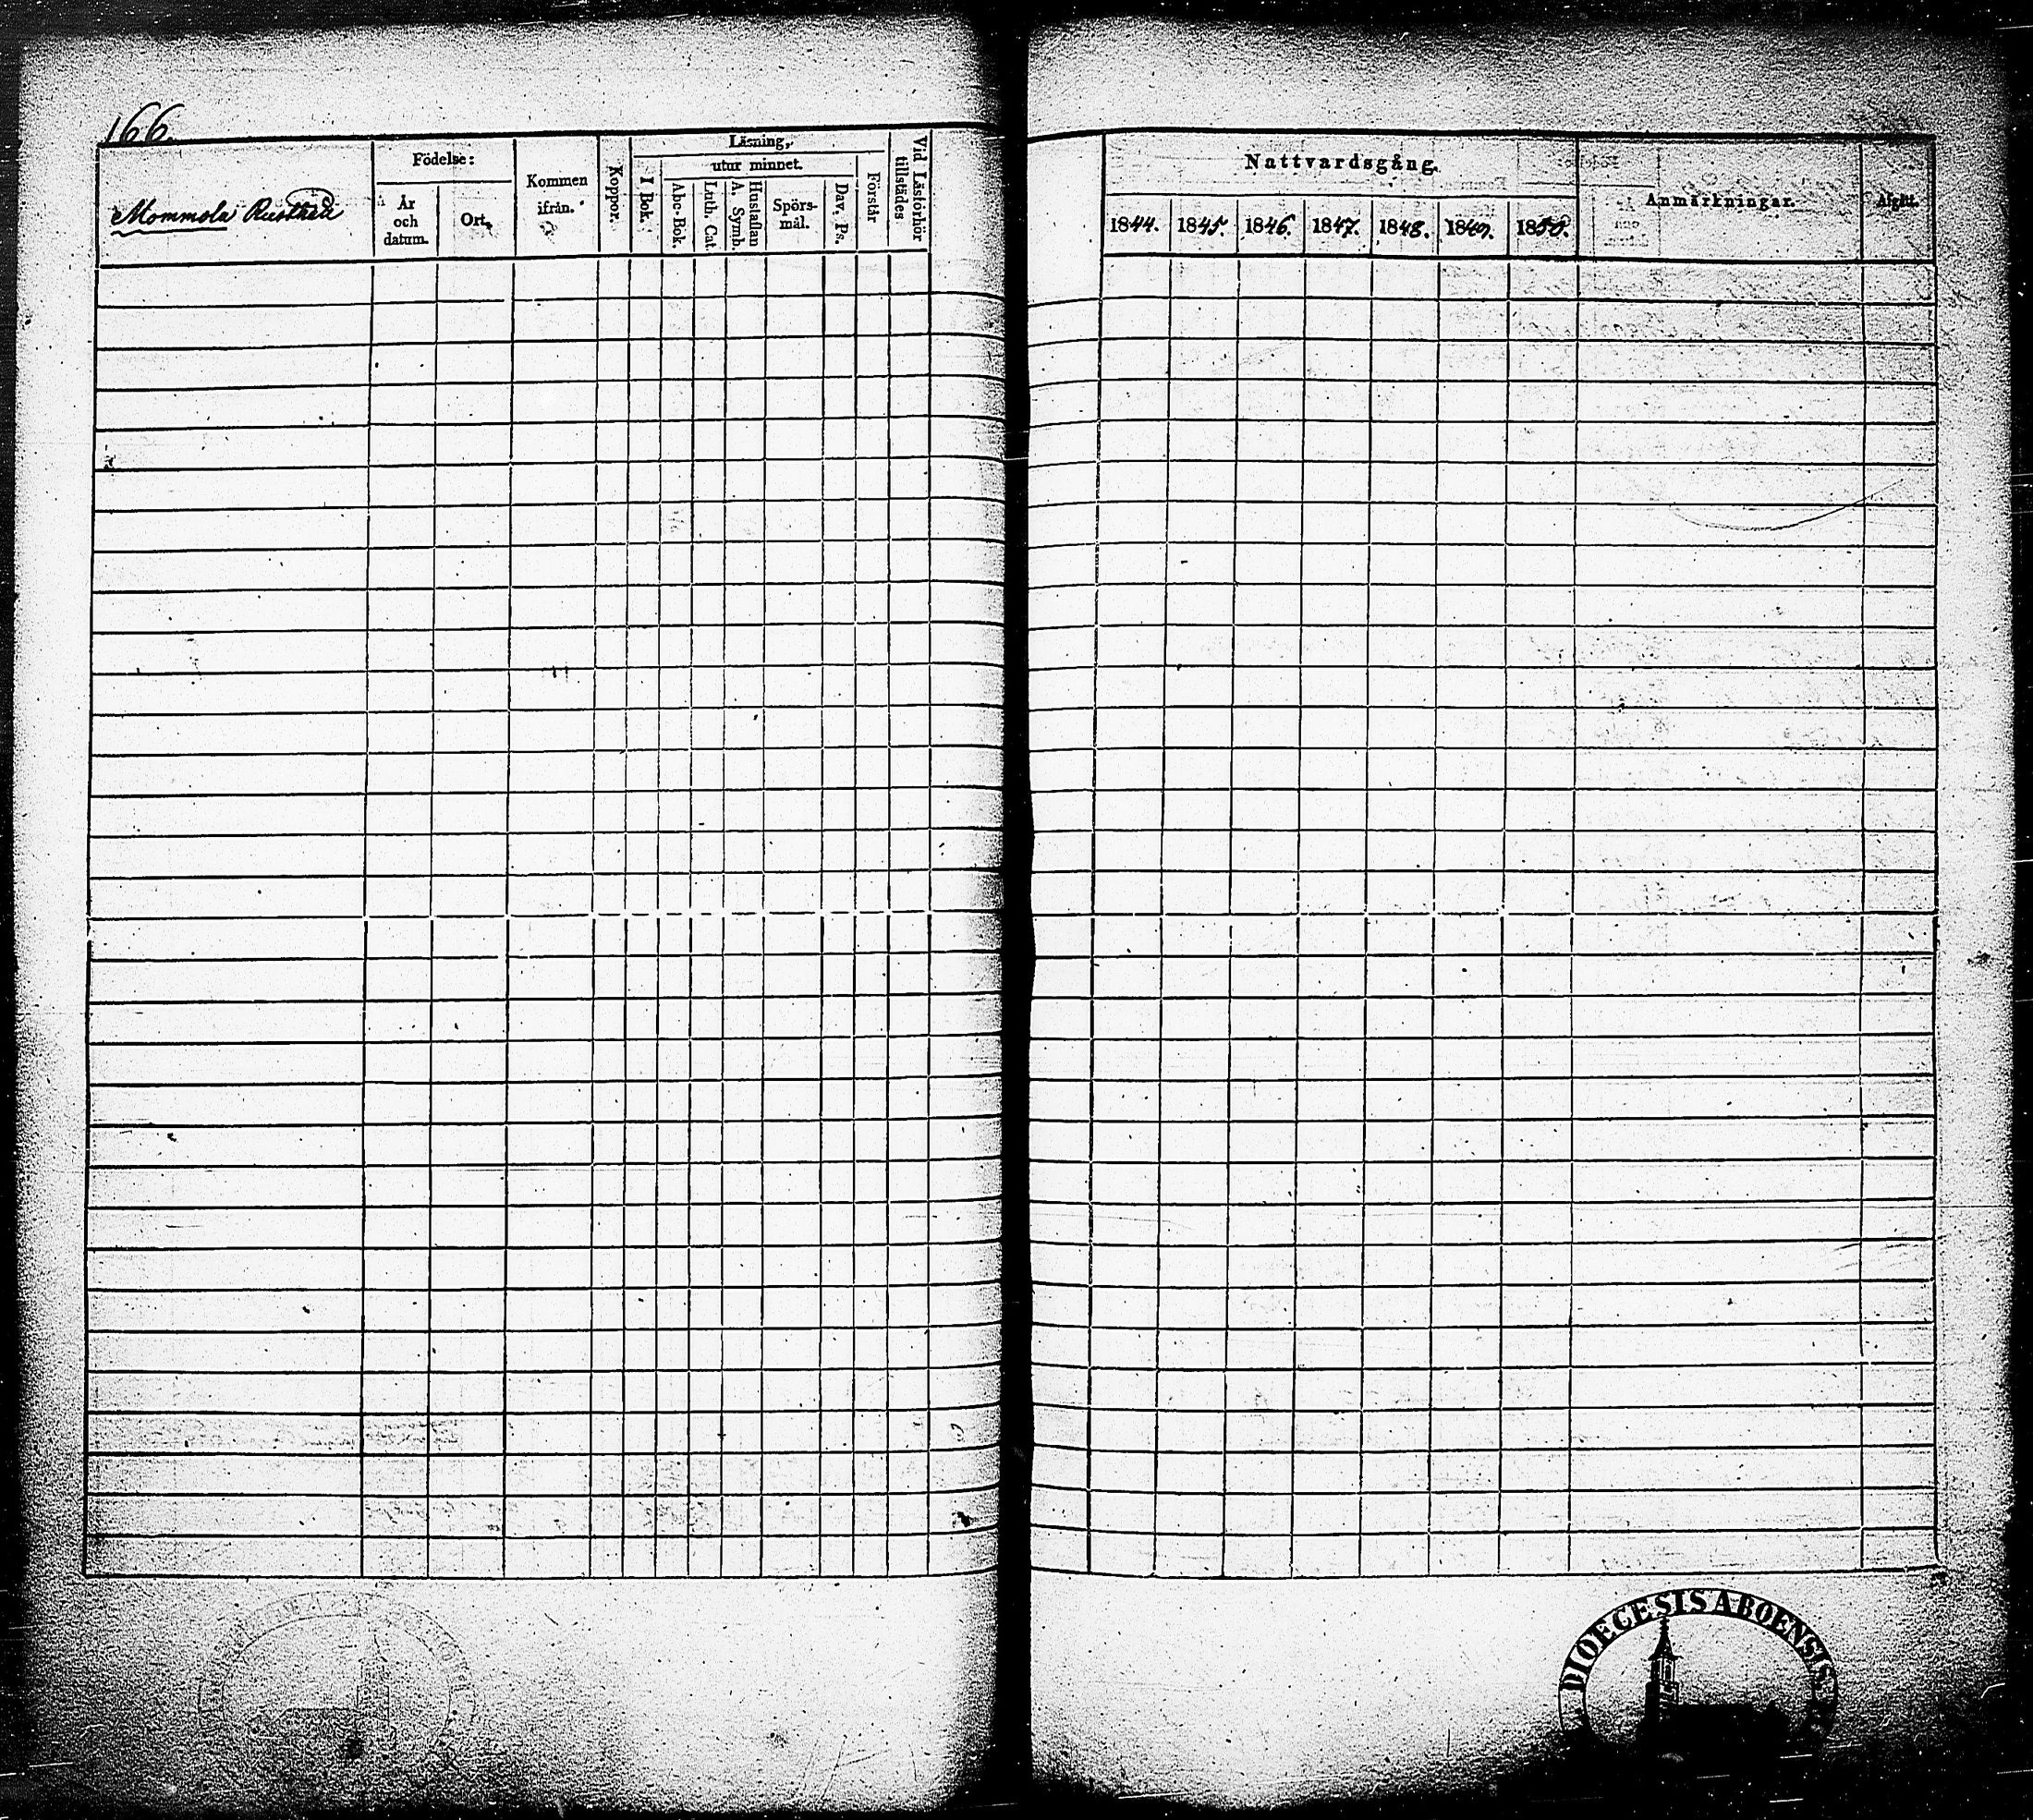 166.
Mommola Rusthåll
Födelse:
År och datum.
Ort.
Kommen ifrån.
Koppor.
Läsning,
I Bok.
utur minnet.
Abc-Bok.
Luth. Cat.
Hustaflan A. Symb.
Spörs-mål.
Dav. Ps.
Förstår
Vid Läsförhör tillstädes
Nattvardsgång.
1844. 1845. 1846. 1847. 1848. 1849. 1850.
Anmärkningar.
Afgått.
DIOECESIS ABOENSIS